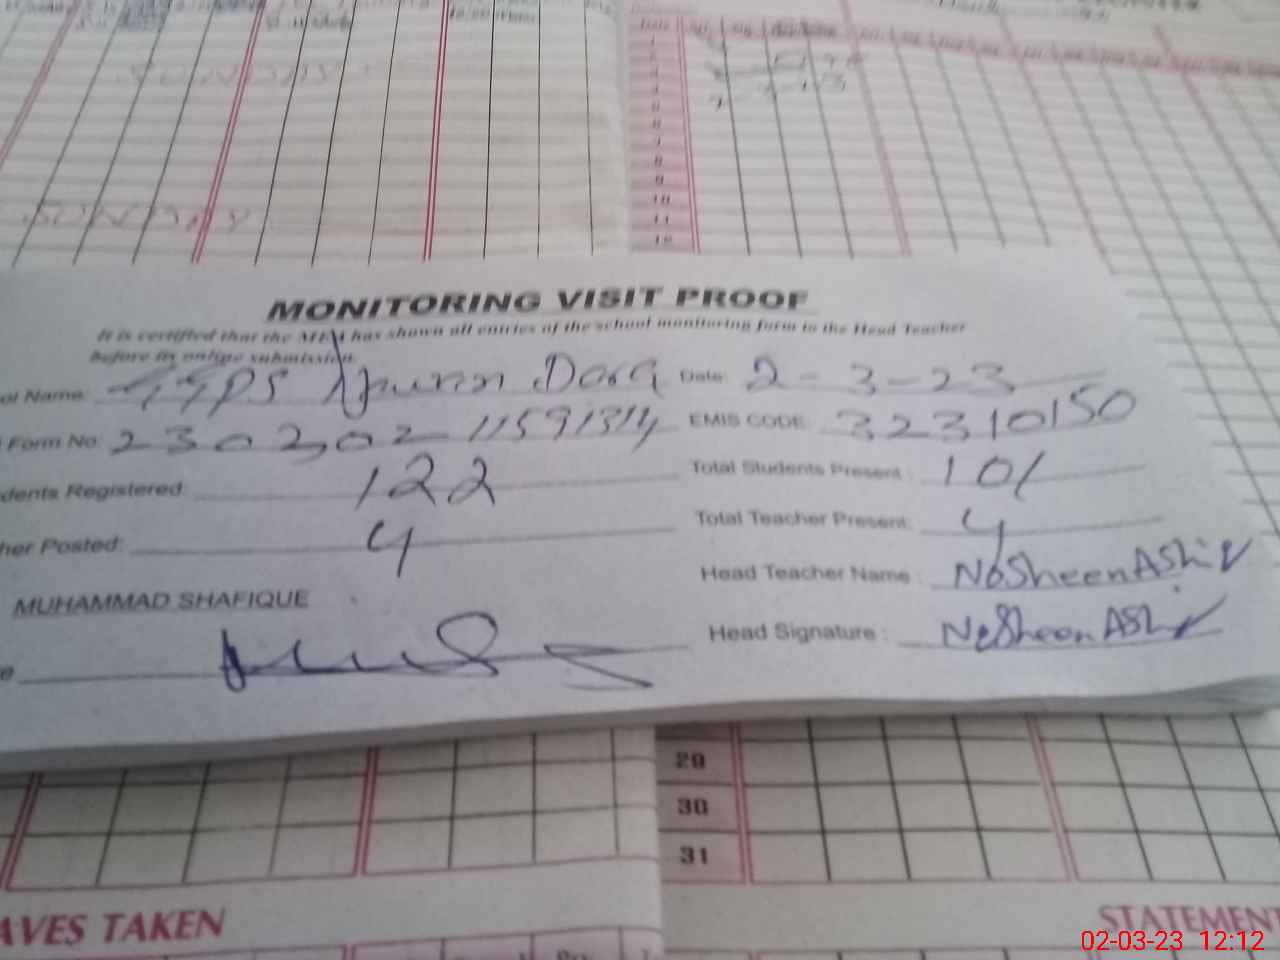 SUNDAY
SUNDAY
10
11
12
MONITORING VISIT PROOF
It is certified that the MEA has shown all entries of the school monitoring form to the Head Teacher
before its online submission.
ol Name: GGPS Dora Date: 2-3-23
Form No: 230202-11591314 EMIS CODE: 32310150
dents Registered: 122 Total Students Present: 101
her Posted: 4 Total Teacher Present: 4
Head Teacher Name: Nosheen Ashir
MUHAMMAD SHAFIQUE
Head Signature: Nosheen Ashir
e
29
30
31
AVES TAKEN
STATEMENT
02-03-23 12:12